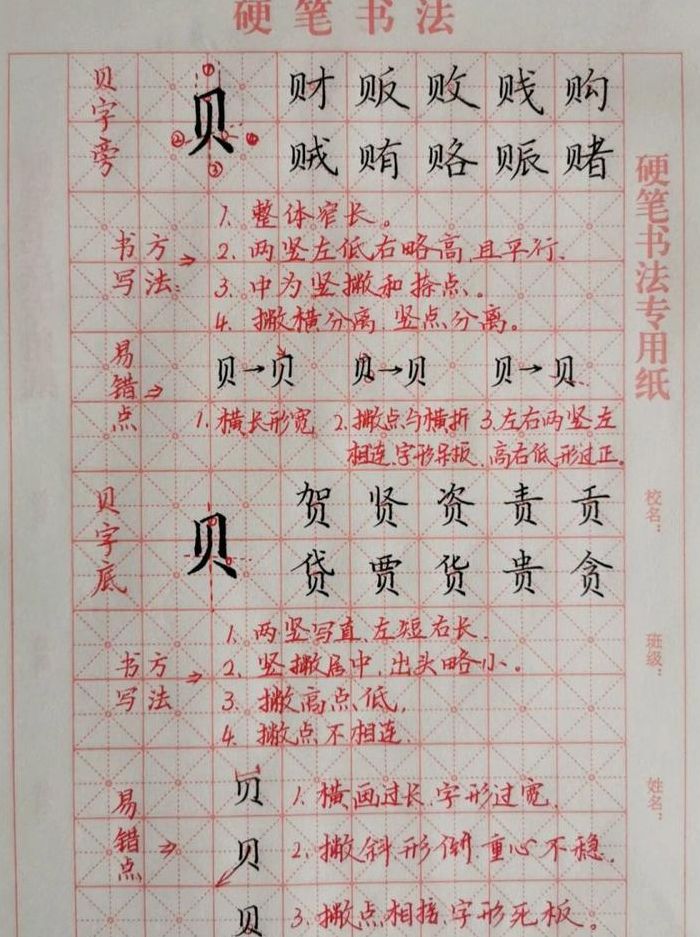 硬笔书法
硬笔书法专用纸
校名：
班级：
姓名：
贝字旁
贝
① ② ③ ④
财 贩 败 贱 购
贼 贿 赂 赈 赌
书写方法：
1. 整体窄长。
2. 两竖左低右略高,且平行.
3. 中为竖撇和捺点。
4. 撇横分离,竖点分离。
易错点
贝→贝 贝→贝 贝→贝
1. 横长形宽
2. 撇点与横折相连,字形呆板.
3. 左右两竖左高右低,形过正。
贝字底
贝
贺 贤 资 责 贡
贷 贾 货 贵 贪
书写方法
1. 两竖写直,左短右长.
2. 竖撇居中,出头略小。
3. 撇高点低,
4. 撇点不相连.
易错点
贝 1. 横画过长,字形过宽.
贝 2. 撇斜形倒,重心不稳.
贝 3. 撇点相接,字形死板。